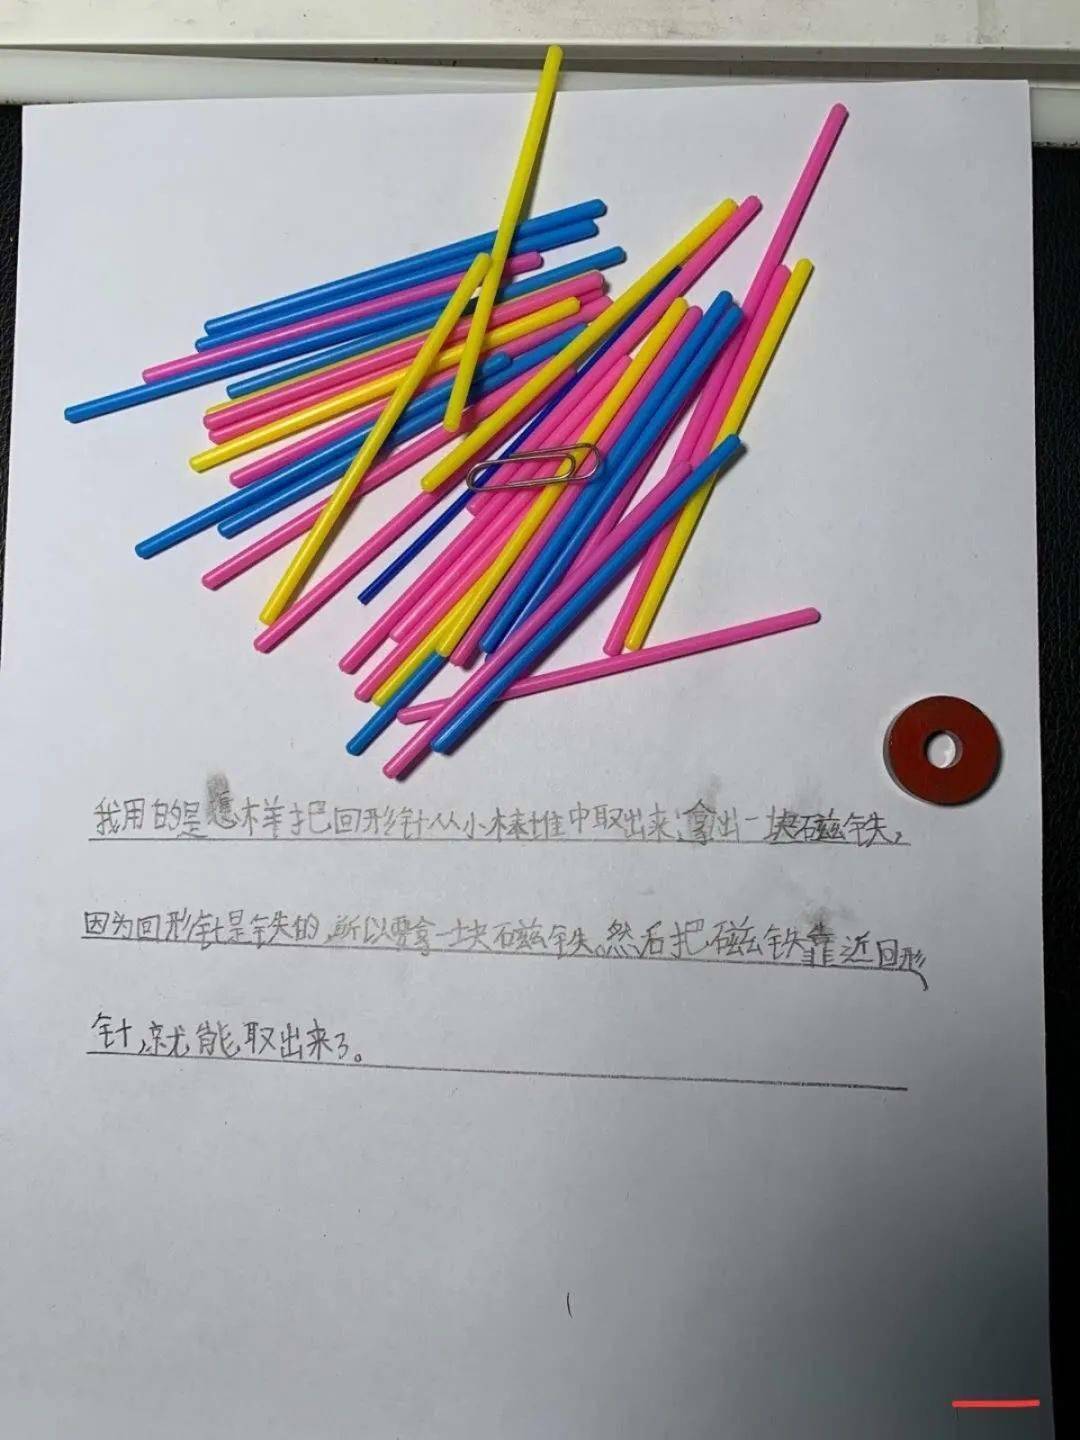 我用的是怎样把回形针从小棒堆中取出来,拿出一块磁铁,
因为回形针是铁的,所以要拿一块磁铁。然后把磁铁靠近回形
针,就能取出来了。